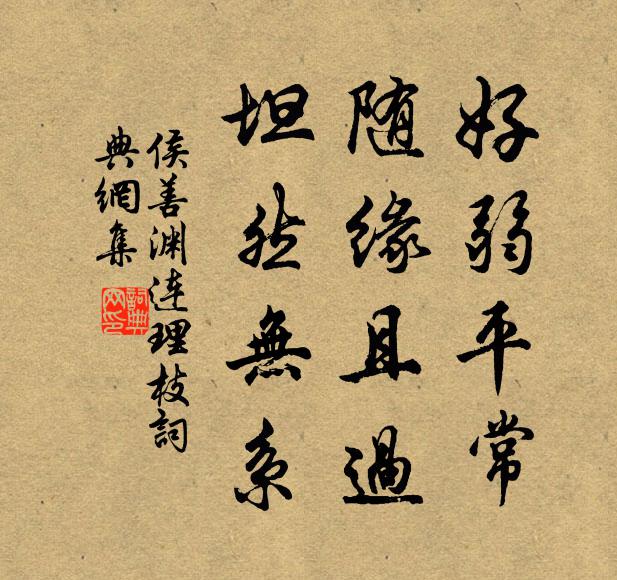 好弱平常
随缘且過
坦然無系
侯善渊連理枝詞
典網集
詞典
网印